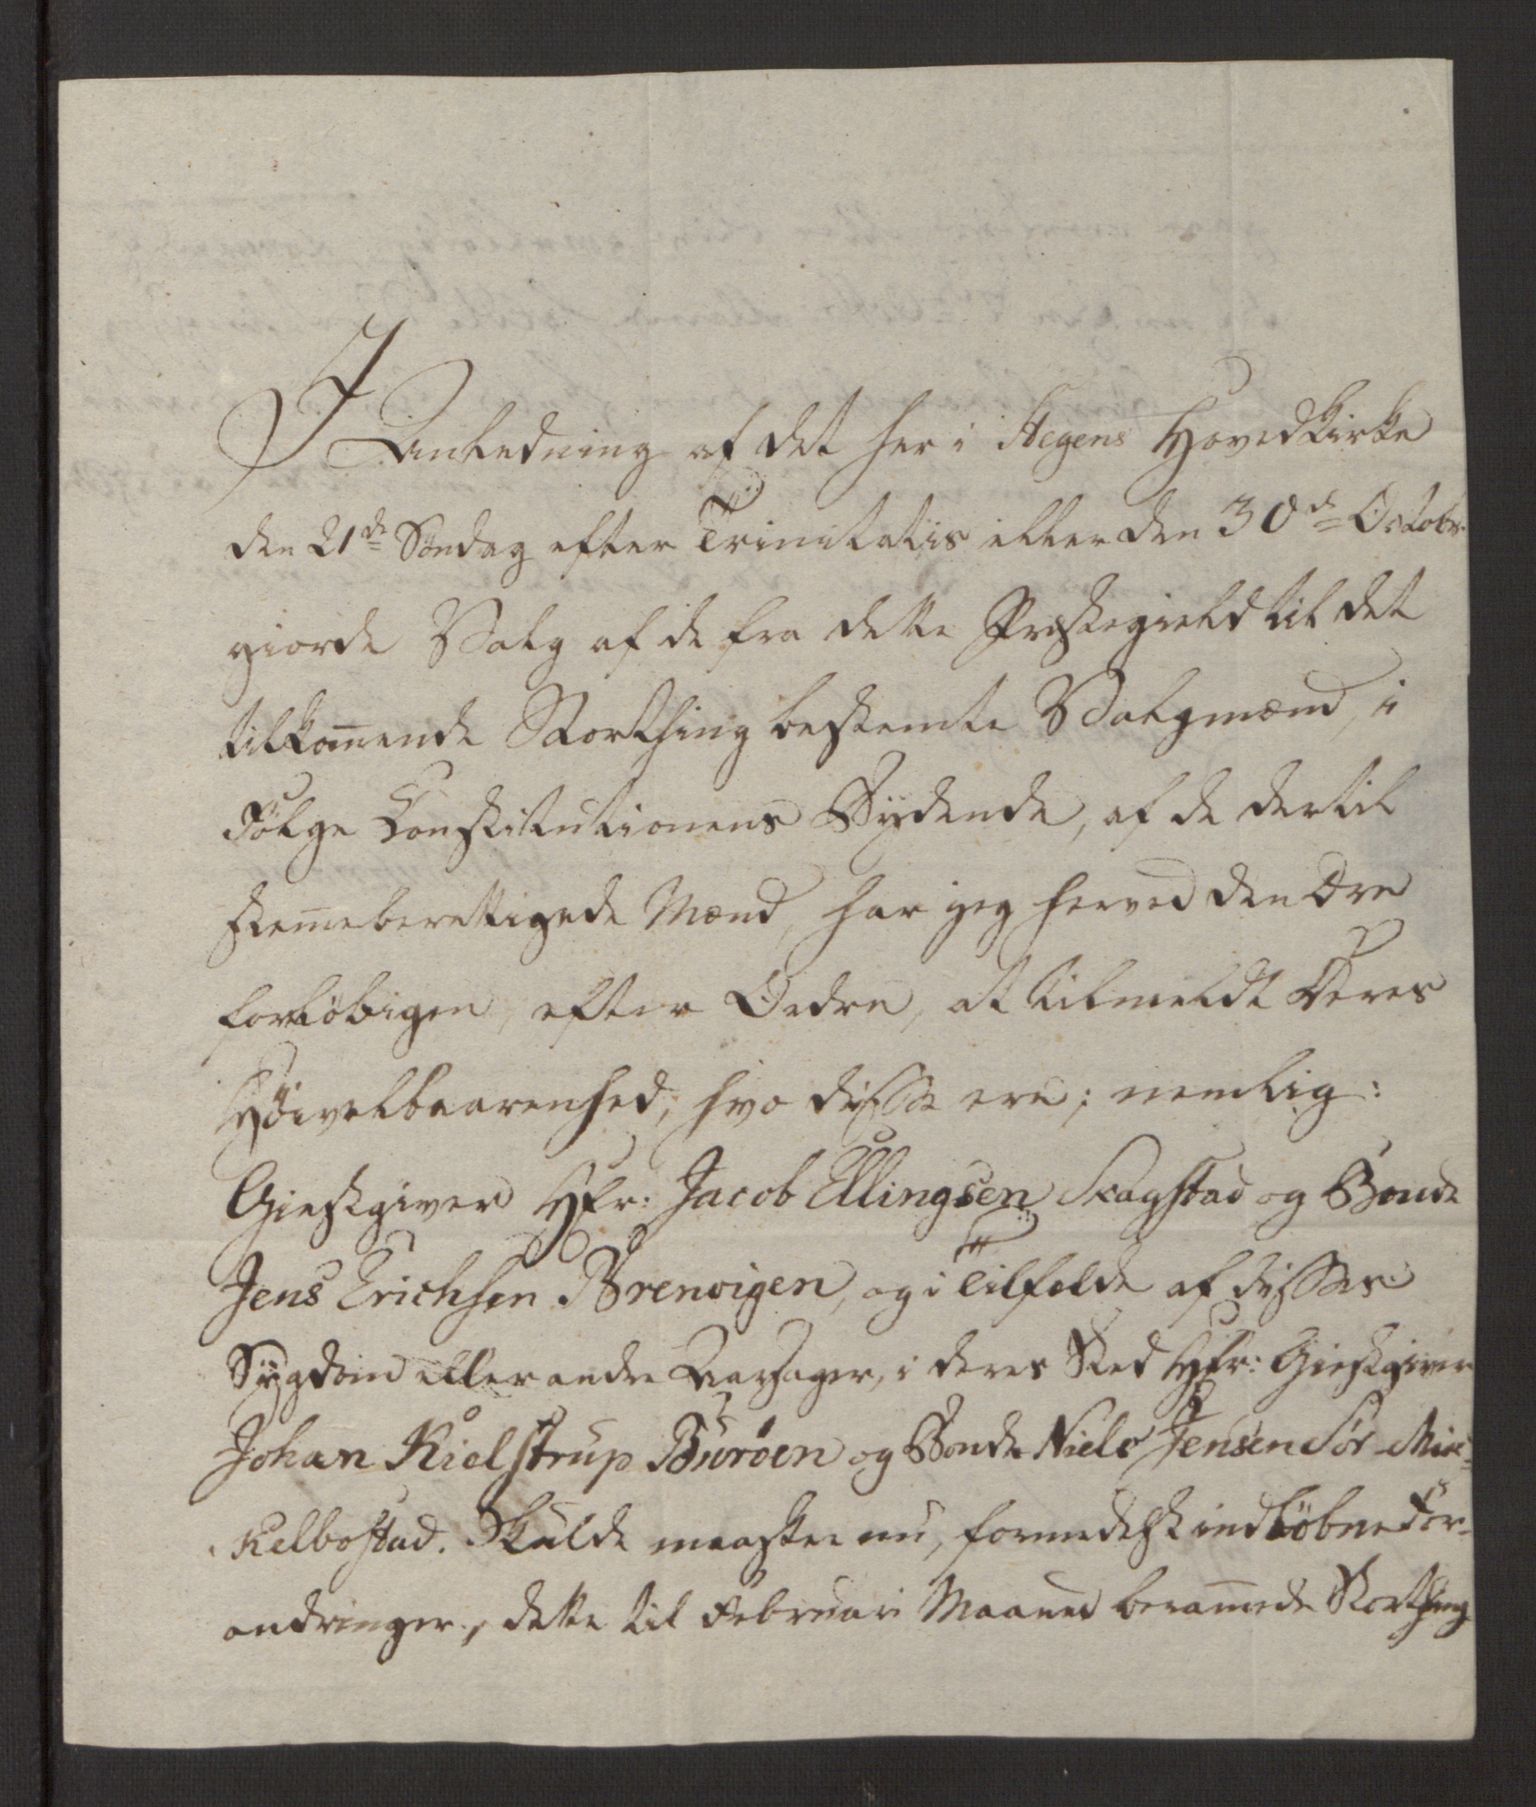 I Anledning af det her i Stegens Hovedkirke
den 21de Søndag efter Trinitatis eller den 30de Octobr.
giorde Valg af de fra dette Præstegield til det
tilkom̅ende Storthing bestemte Valgmænd, i
Følge Constitutionens Bydende, af de dertil
stem̅eberettigede Mænd, har jeg herved den Ære
forløbigen, efter Ordre, at tilmeldt Deres
Høivelbaarenhed, hvo disse ere; nemlig:
Giestgiver Hr: Jacob Ellingsen Skagstad og Bonde
Jens Erichsen Brenvigen, og i Tilfælde af disses
Sygdom eller andre Aarsager, i deres Sted Hr: Giestgiver
Johan Kielstrup Burøen og Bonde Niels Jensen Sør Mik-
kelbostad. Skulde maaskee nu, formedelst indløbne For-
andringer, dette til Februari Maaned beram̅ede Storthing